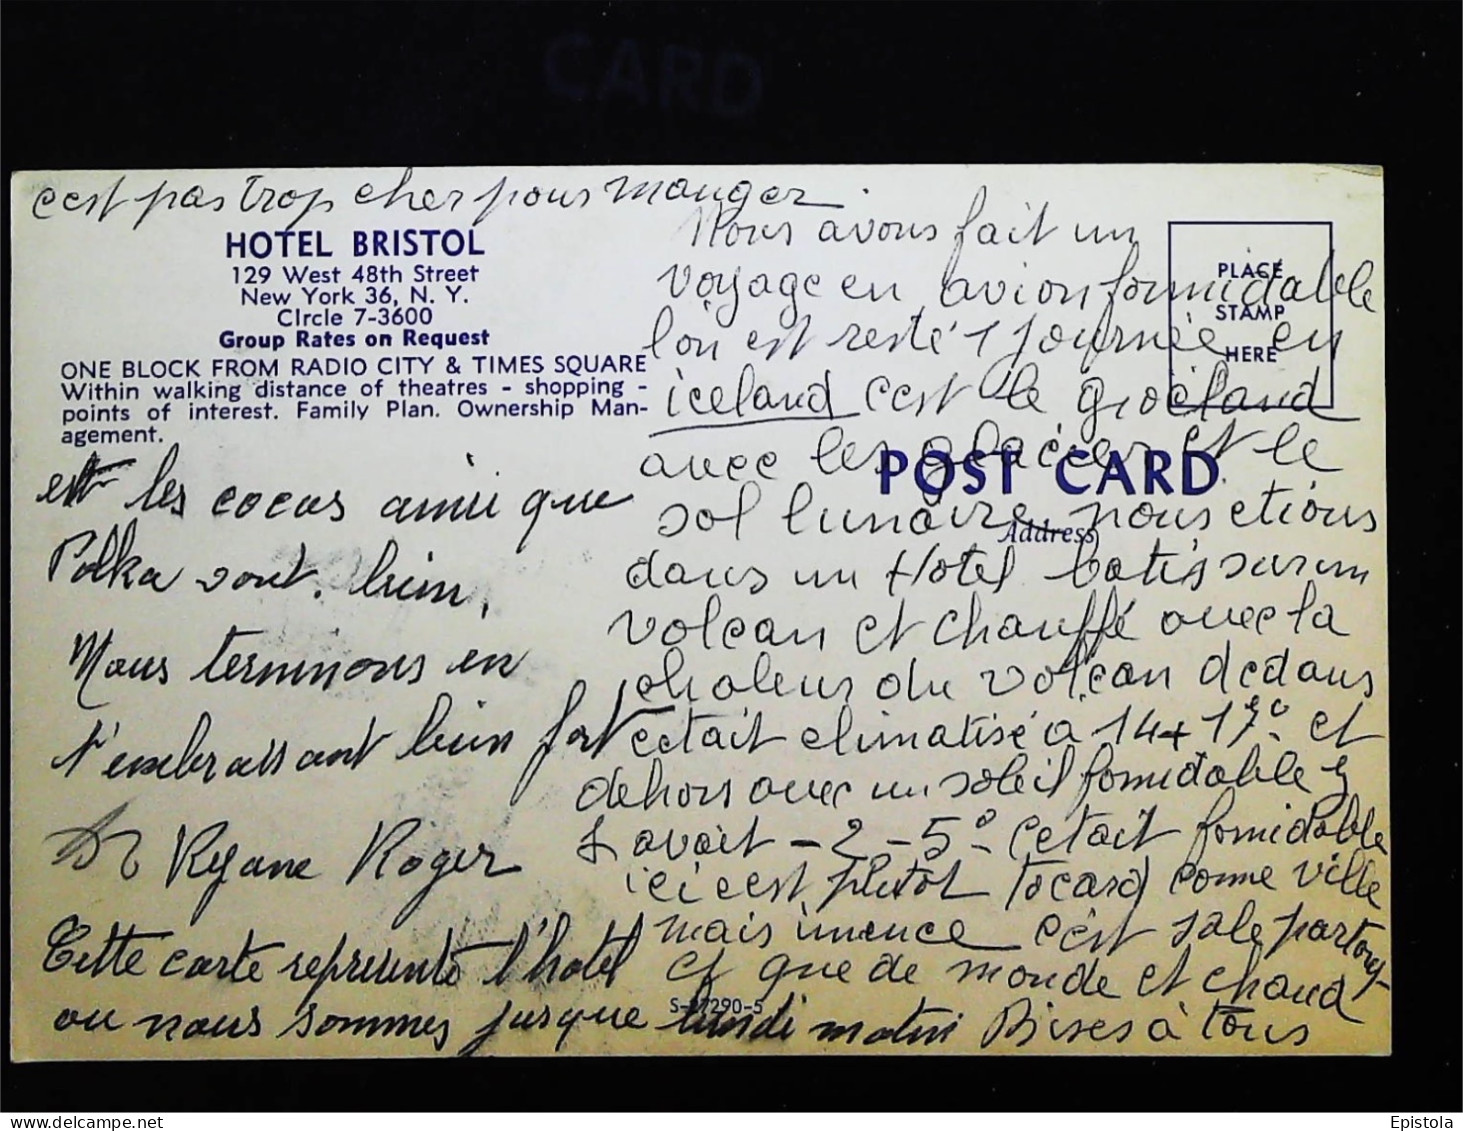 CARD
c'est pas trop cher pour manger
HOTEL BRISTOL
129 West 48th Street
New York 36, N. Y.
CIrcle 7-3600
Group Rates on Request
ONE BLOCK FROM RADIO CITY & TIMES SQUARE
Within walking distance of theatres - shopping -
points of interest. Family Plan. Ownership Man-
agement.
est les cocos ainsi que
Polka vont. bien,
Nous terminons en
t'embrassant bien fort
Rejane Roger
Cette carte represente l'hotel
ou nous sommes jusque lundi matin
Nous avons fait un
voyage en avion formidable
l'on est resté 1 journée en
iceland c'est le groëland
avec les glacier et le
sol lunaire nous etions
dans un Hotel batis sur un
volcan et chauffé avec la
chaleur du volcan dedans
cetait climatisé a 14 + 17° et
dehors avec un soleil formidable
avait - 2 - 5° - cetait formidable
ici c'est plutot tocard comme ville
mais imence c'est sale partout
et que de monde et chaud
Bises à tous
PLACE
STAMP
HERE
POST CARD
Address
S-27290-5
delcampe.net
Epistola